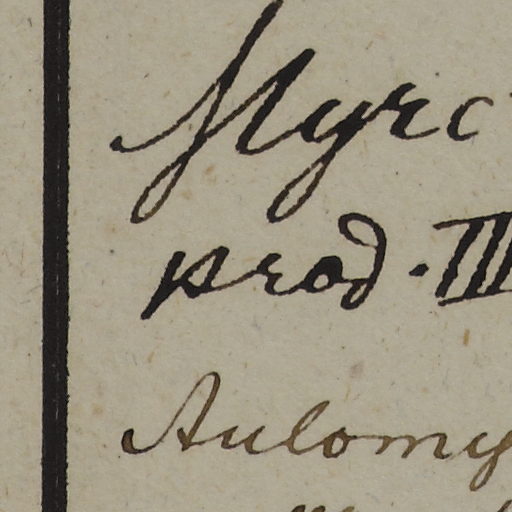 Myrc
prod. III
Aulomy